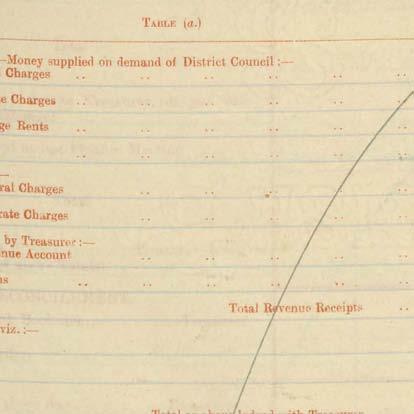 TABLE (a.)
—Money supplied on demand of District Council :—
Charges .. .. .. .. .. ..
e Charges .. .. .. .. .. ..
ge Rents .. .. .. .. .. ..
.. .. .. .. .. ..
—
ral Charges .. .. .. .. ..
rate Charges .. .. .. .. ..
by Treasurer :—
nue Account .. .. .. .. ..
ns .. .. .. .. .. ..
Total Revenue Receipts ..
viz. :—